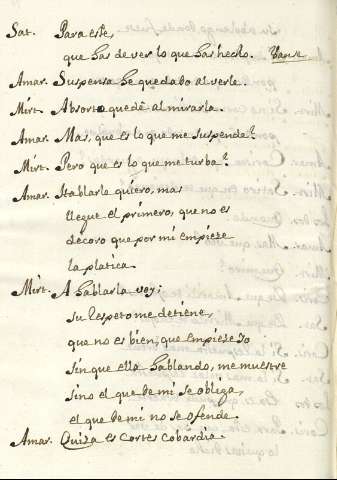 Sat. Para este,
que has de ver lo que has hecho. Vanse
Amar. Suspensa he quedado al verle.
Mirt. Absorto quedé al mirarla.
Amar. Mas, que es lo que me suspende?
Mirt. Pero que es lo que me turba?
Amar. Hablarle quiero, mas
llegue el primero, que no es
decoro que por mi empieze
la platica.
Mirt. A hablarla voy;
su respeto me detiene,
que no es bien, que empieze yo
sin que ella hablando, me muestre
sino el que de mi se obliga,
el que de mi no se ofende.
Amar. Quiza es cortes cobardia.